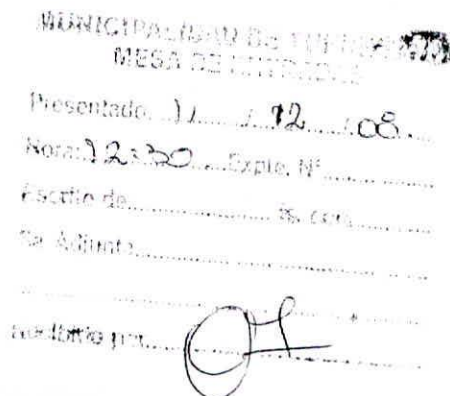 MUNICIPALIDAD DE
MESA DE ENTRADAS
Presentado 11 / 12 / 08
Hora: 12:30 Expte. Nº
Escrito de
Se Adjunta
Recibido por